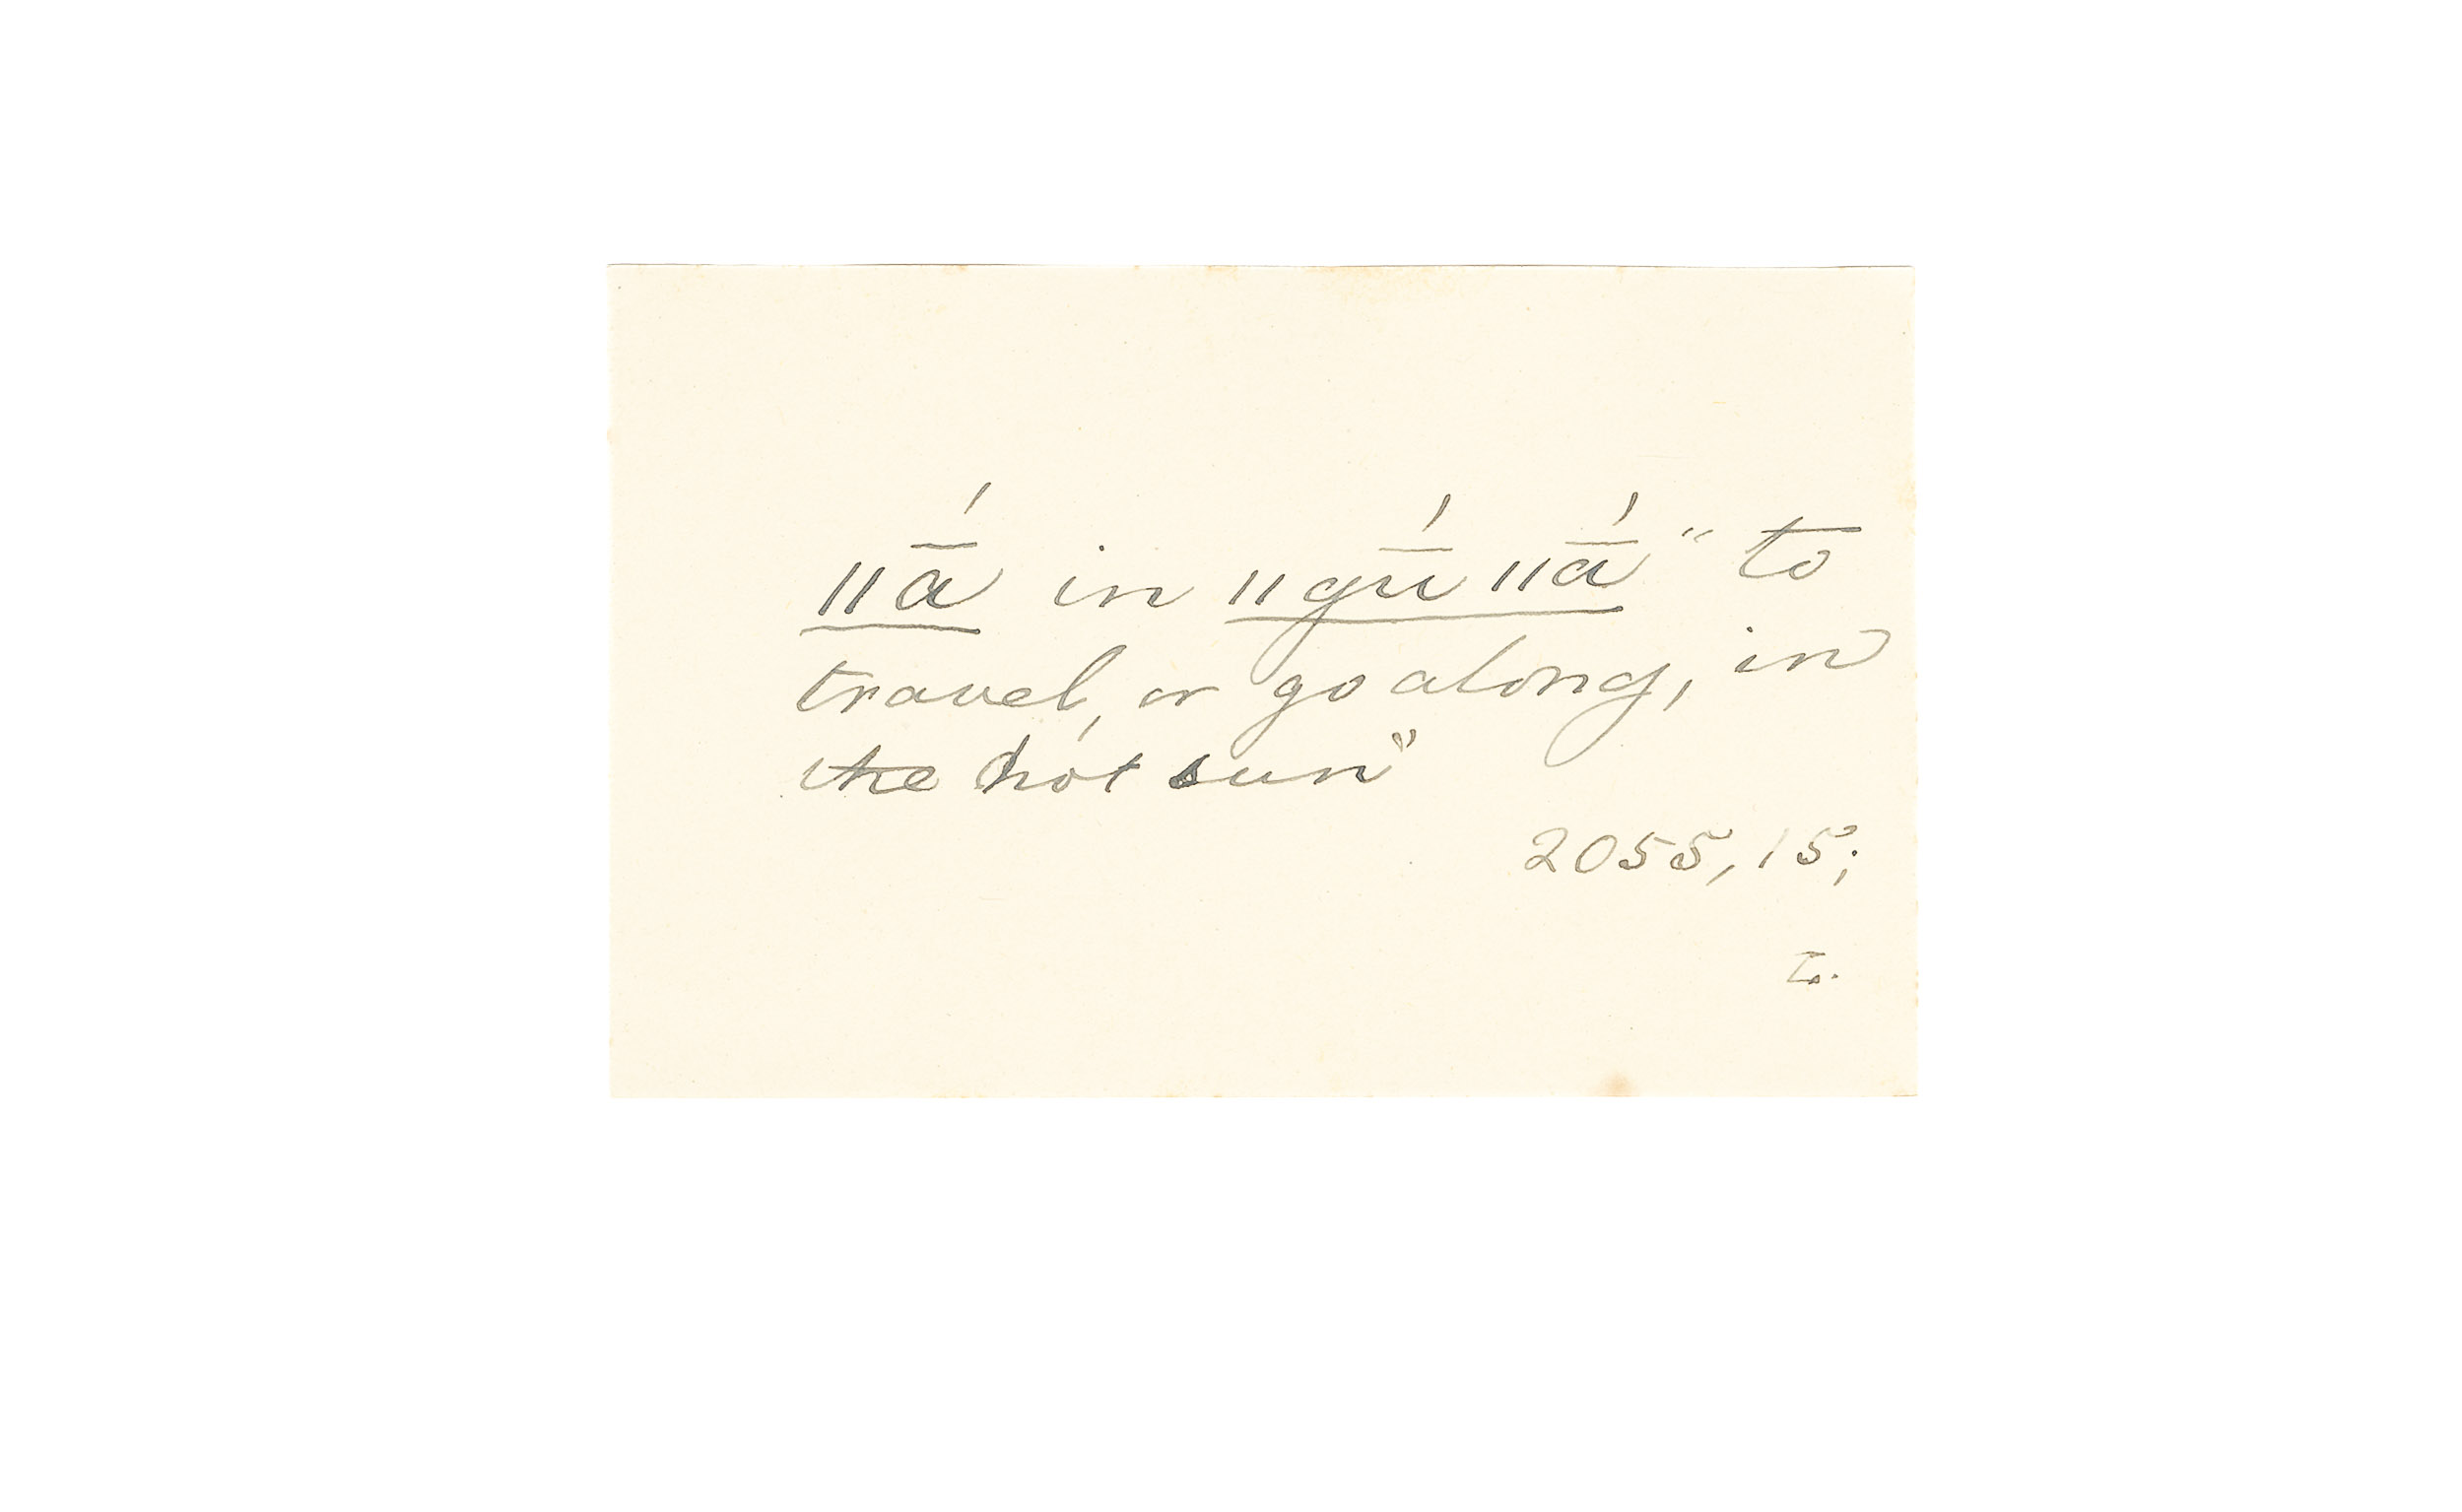 ǁā́ in ǁgū́ ǁā́ "to
travel, or go along, in
the hot sun"
2055, 15;
L.